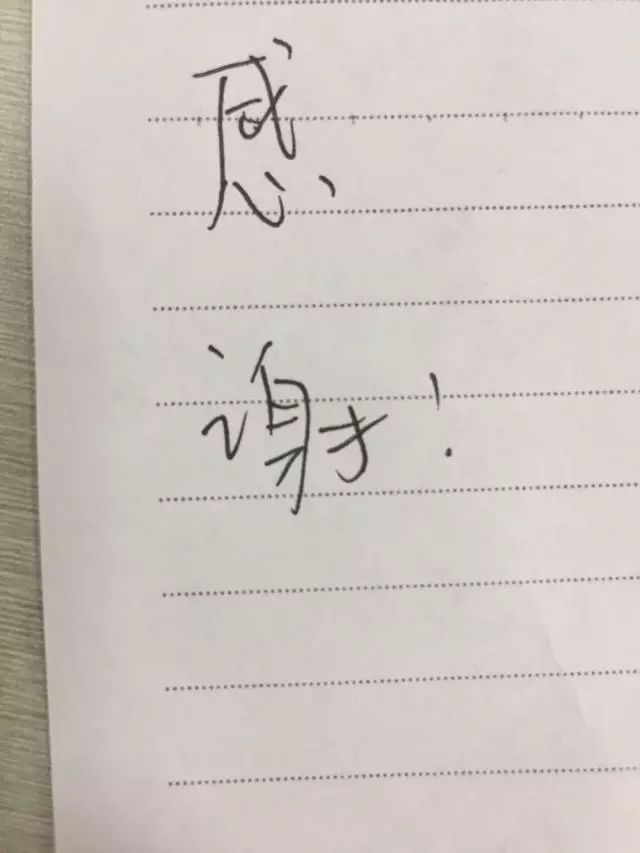 感
谢!